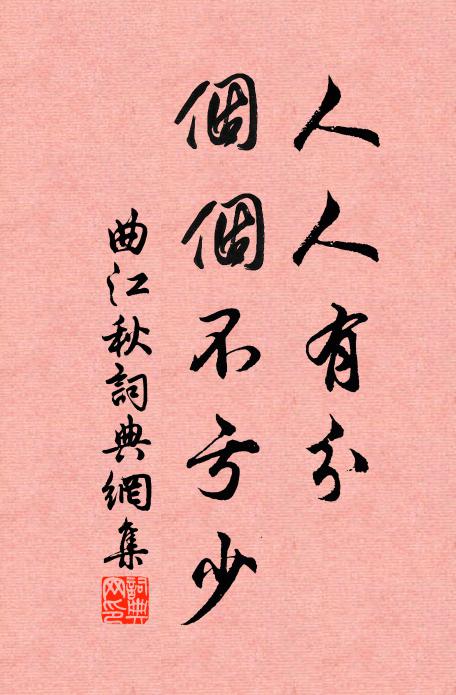 人人有分
個個不亏少
曲江秋詞典網集
詞典网印